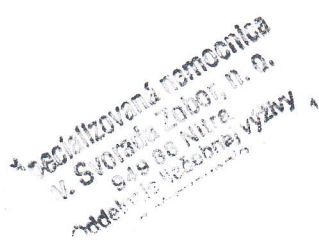 Špecializovaná nemocnica
v. Svorada Zobor, n. o.
949 88 Nitra
Oddelenie liečebnej výživy